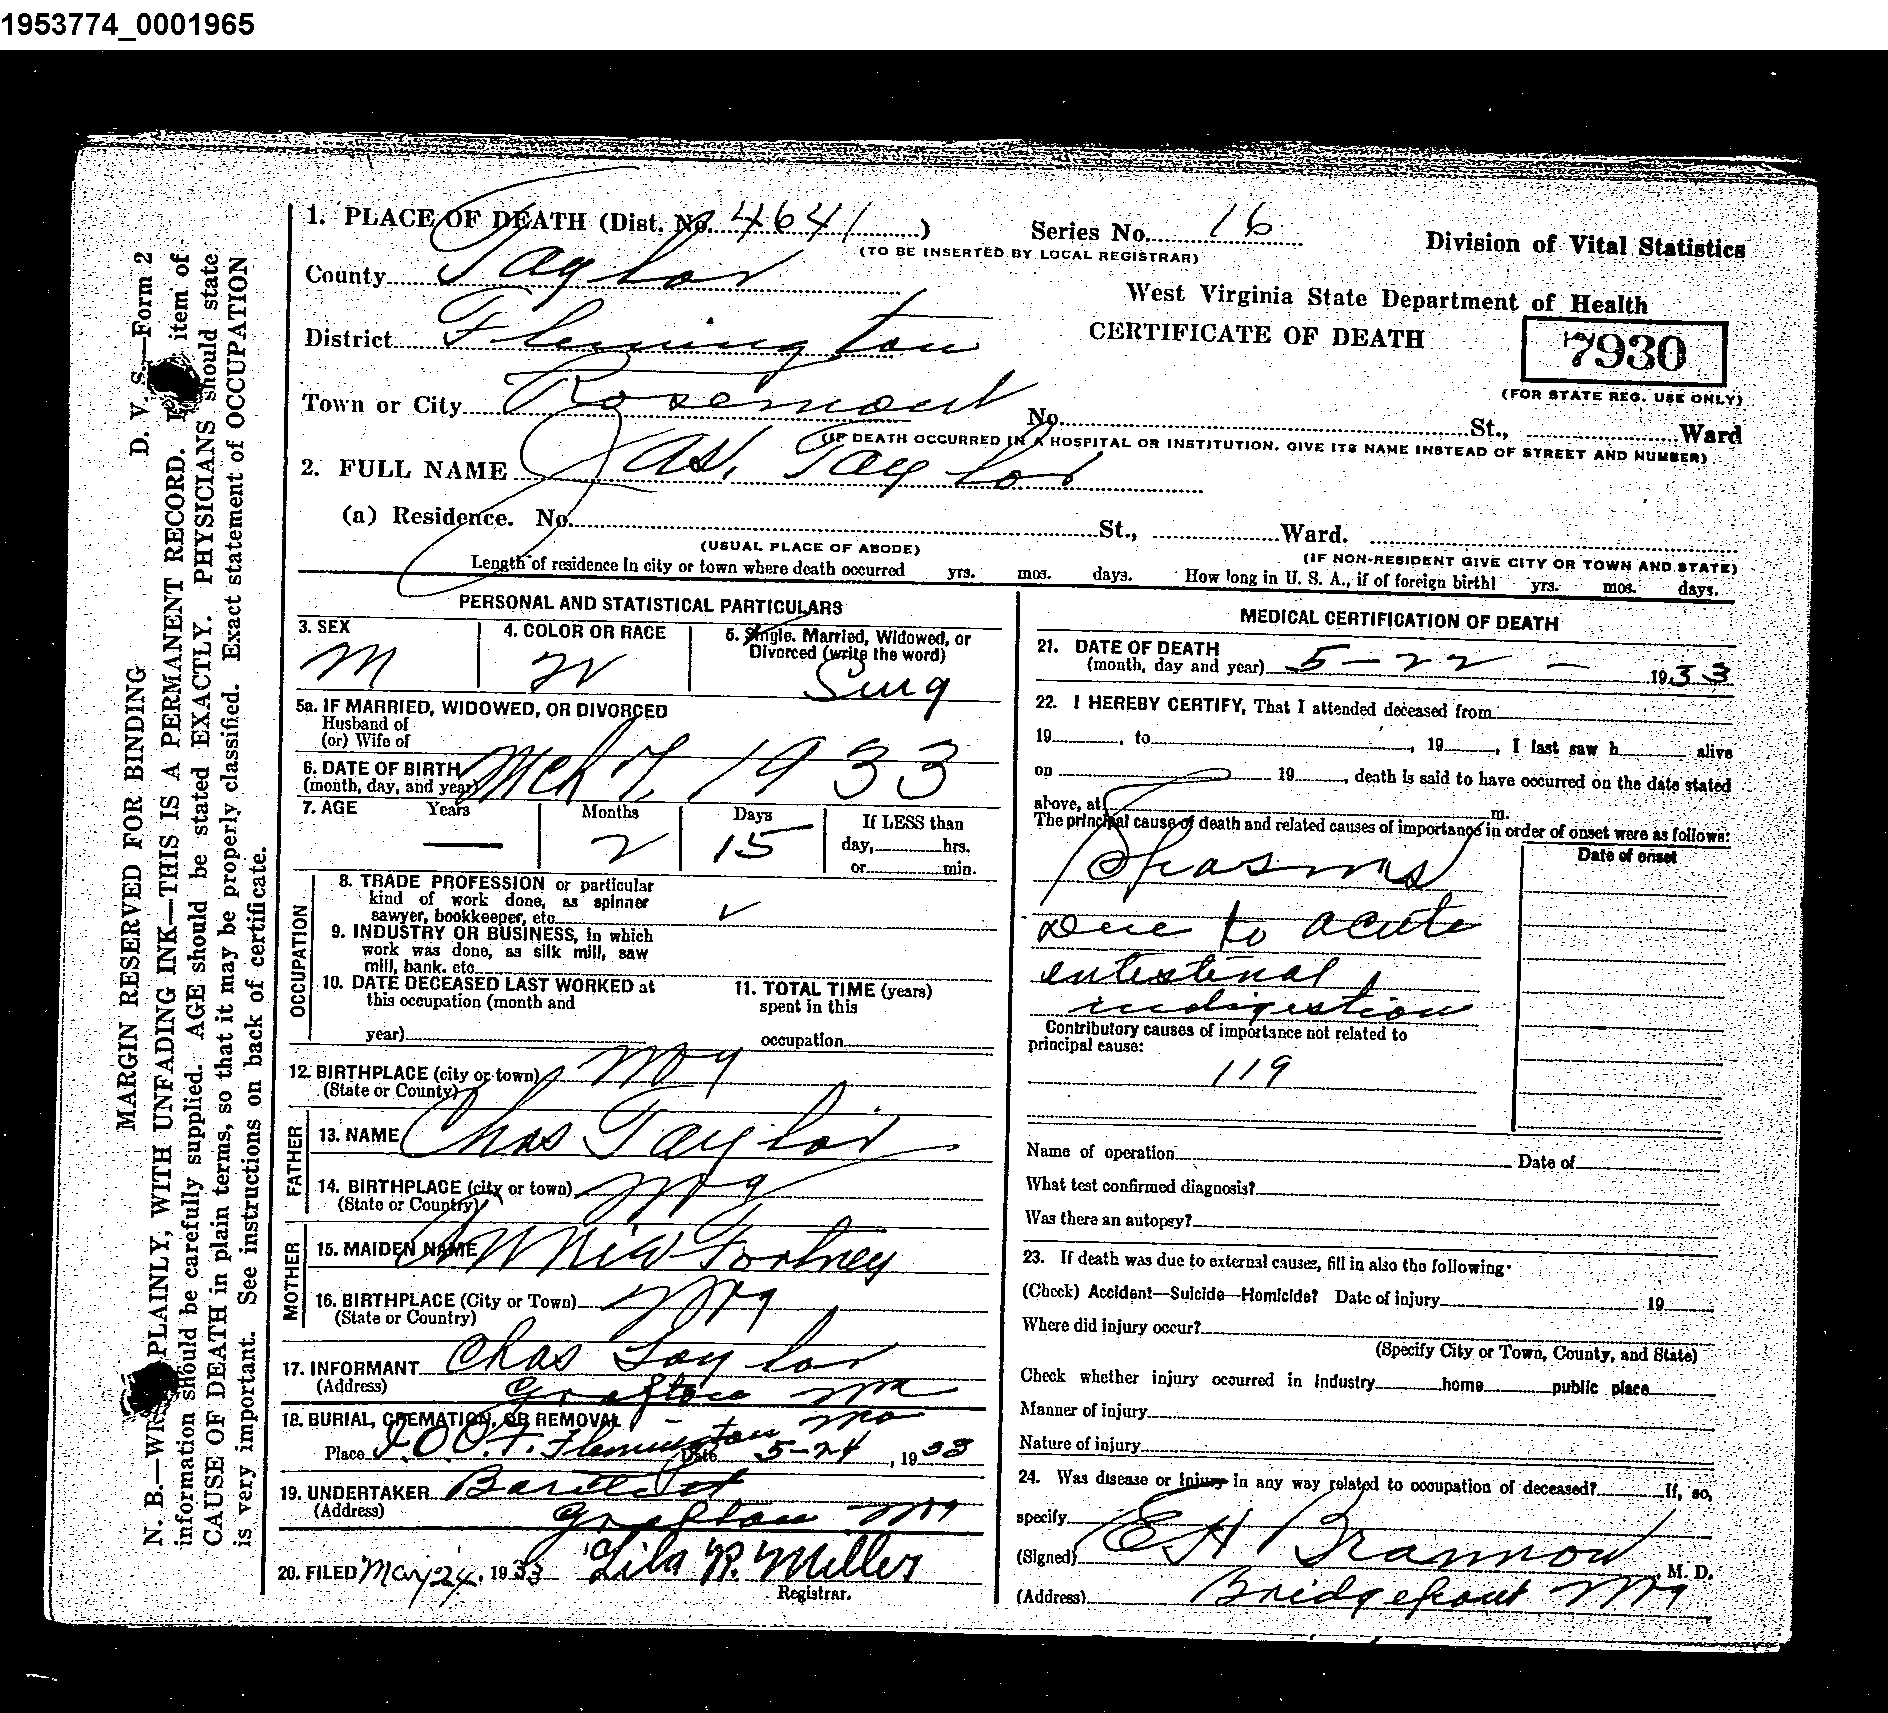 1953774_0001965
1. PLACE OF DEATH (Dist. No. 4641)
Series No. 16
Division of Vital Statistics
(TO BE INSERTED BY LOCAL REGISTRAR)
County Taylor
West Virginia State Department of Health
CERTIFICATE OF DEATH
7930
(FOR STATE REG. USE ONLY)
District Flemington
Town or City Rosemont
No. St., Ward
(IF DEATH OCCURRED IN A HOSPITAL OR INSTITUTION, GIVE ITS NAME INSTEAD OF STREET AND NUMBER)
2. FULL NAME Jas. Taylor
(a) Residence. No. St., Ward.
(USUAL PLACE OF ABODE)
(IF NON-RESIDENT GIVE CITY OR TOWN AND STATE)
Length of residence in city or town where death occurred yrs. mos. days. How long in U. S. A., if of foreign birth! yrs. mos. days.
PERSONAL AND STATISTICAL PARTICULARS
3. SEX
M
4. COLOR OR RACE
W
5. Single, Married, Widowed, or
Divorced (write the word)
Sing
5a. IF MARRIED, WIDOWED, OR DIVORCED
Husband of
(or) Wife of
6. DATE OF BIRTH
(month, day, and year) Mch 7, 1933
7. AGE Years Months Days
— 2 15
If LESS than
day, hrs.
or min.
OCCUPATION
8. TRADE PROFESSION or particular
kind of work done, as spinner
sawyer, bookkeeper, etc. ✓
9. INDUSTRY OR BUSINESS, in which
work was done, as silk mill, saw
mill, bank, etc.
10. DATE DECEASED LAST WORKED at
this occupation (month and
year)
11. TOTAL TIME (years)
spent in this
occupation
12. BIRTHPLACE (city or town)
(State or County)
FATHER
13. NAME Chas Taylor
14. BIRTHPLACE (city or town)
(State or Country)
MOTHER
15. MAIDEN NAME Fortney
16. BIRTHPLACE (City or Town)
(State or Country)
17. INFORMANT Chas Taylor
(Address) Grafton
18. BURIAL, CREMATION, OR REMOVAL
Place I.O.O.F. Flemington Date 5-24, 1933
19. UNDERTAKER Bartlett
(Address) Grafton
20. FILED May 24, 1933 Lila R. Miller
Registrar.
MEDICAL CERTIFICATION OF DEATH
21. DATE OF DEATH
(month, day and year) 5-22- 1933
22. I HEREBY CERTIFY, That I attended deceased from
19 , to , 19 , I last saw h alive
on 19 , death is said to have occurred on the date stated
above, at m.
The principal cause of death and related causes of importance in order of onset were as follows:
Date of onset
Spasms
due to acute
intestinal
indigestion
Contributory causes of importance not related to
principal cause:
119
Name of operation Date of
What test confirmed diagnosis?
Was there an autopsy?
23. If death was due to external causes, fill in also the following:
(Check) Accident—Suicide—Homicide? Date of injury 19
Where did injury occur?
(Specify City or Town, County, and State)
Check whether injury occurred in industry home public place
Manner of injury
Nature of injury
24. Was disease or injury in any way related to occupation of deceased? If, so,
specify
(Signed) E H Brannon M. D.
(Address) Bridgeport
MARGIN RESERVED FOR BINDING D. V. S.—Form 2
N. B.—WRITE PLAINLY, WITH UNFADING INK—THIS IS A PERMANENT RECORD. item of
information should be carefully supplied. AGE should be stated EXACTLY. PHYSICIANS should state
CAUSE OF DEATH in plain terms, so that it may be properly classified. Exact statement of OCCUPATION
is very important. See instructions on back of certificate.